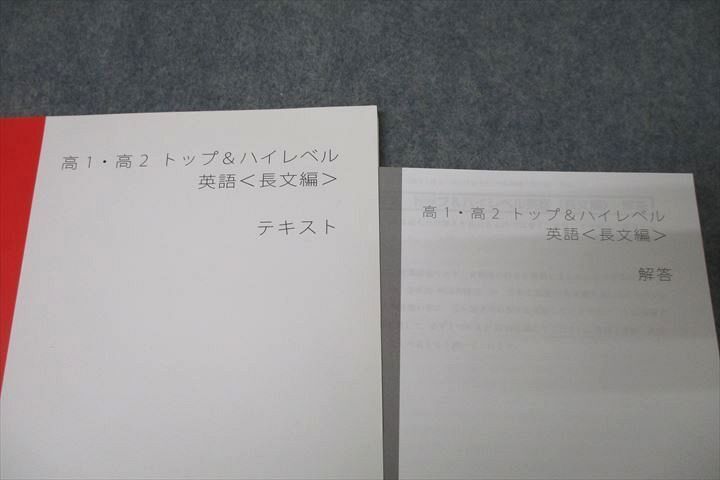 高1・高2 トップ&ハイレベル
英語<長文編>
テキスト
高1・高2 トップ&ハイレベル
英語<長文編>
解答